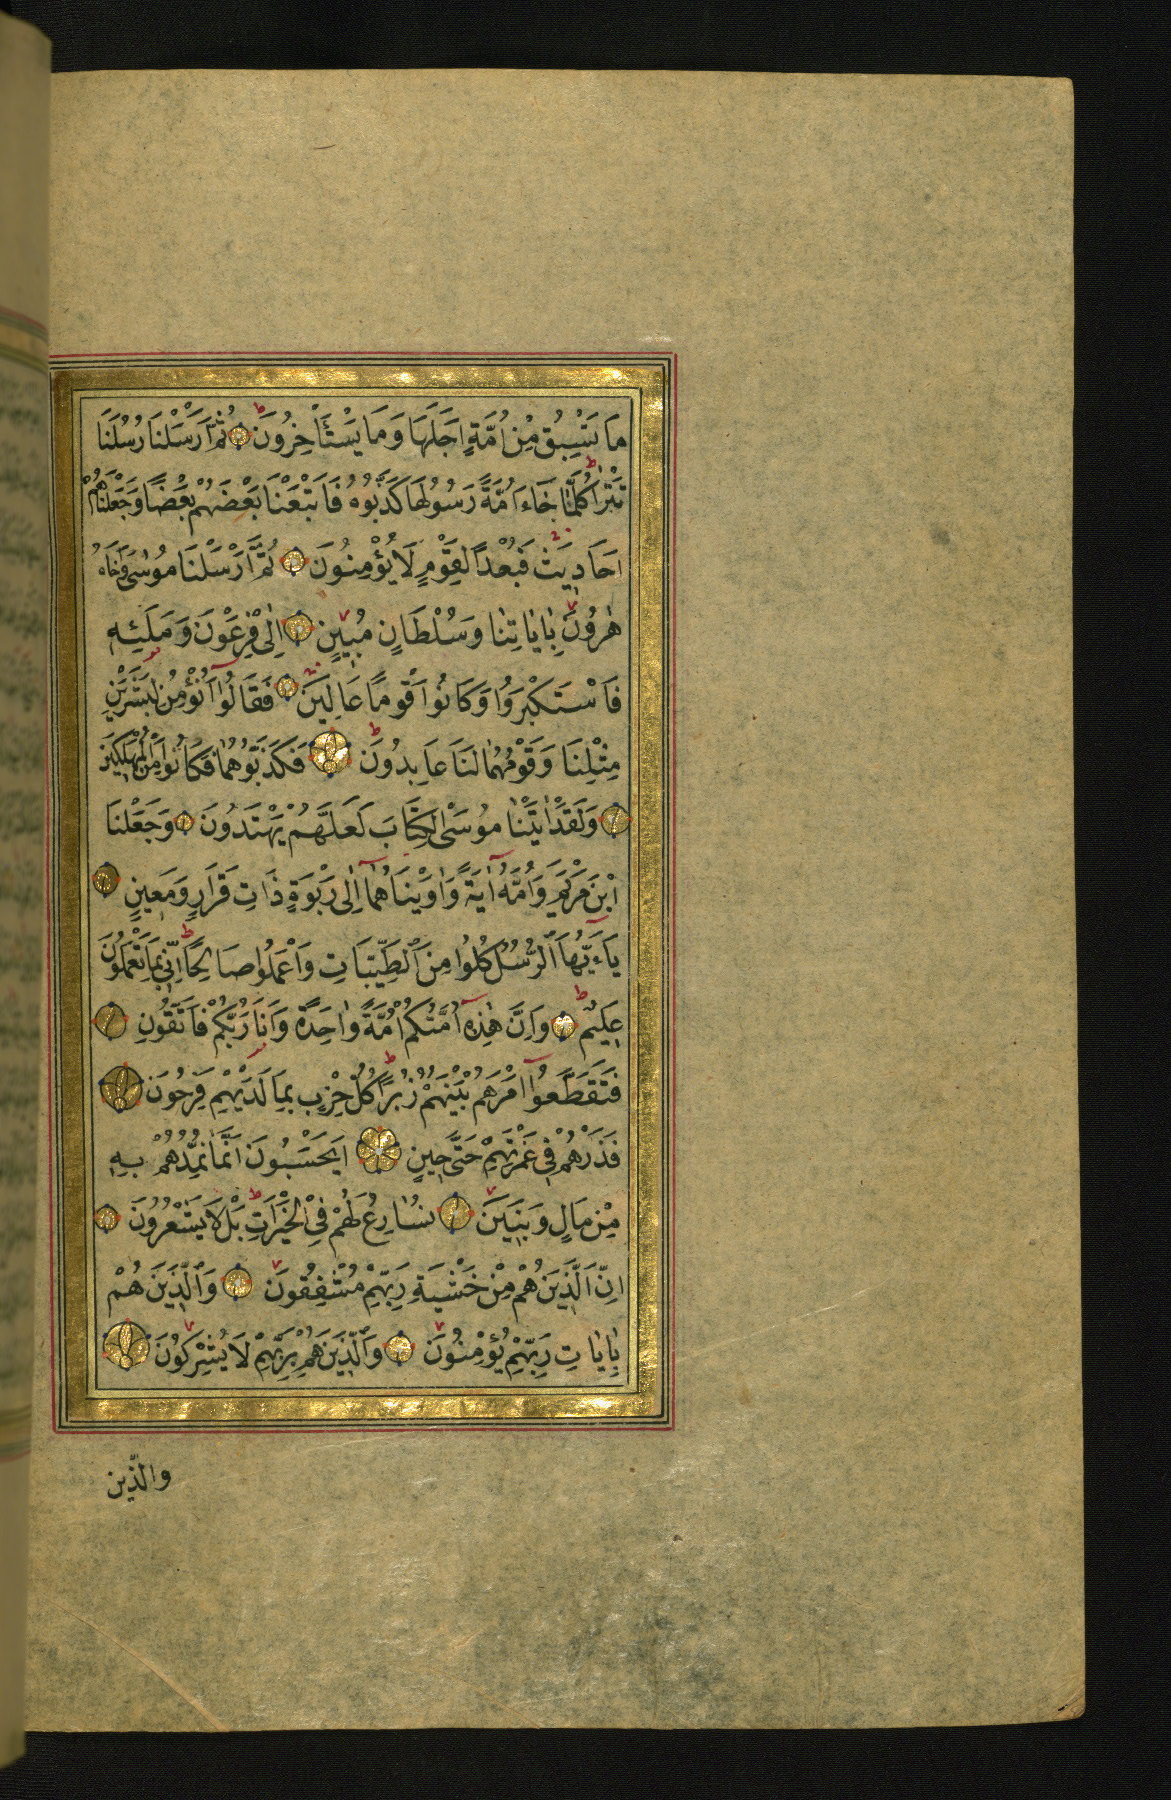 مَا تَسْبِقُ مِنْ اُمَّةٍ اَجَلَهَا وَمَا يَسْتَأْخِرُونَ ثُمَّ اَرْسَلْنَا رُسُلَنَا
تَتْرَا كُلَّمَا جَاءَ اُمَّةً رَسُولُهَا كَذَّبُوهُ فَاَتْبَعْنَا بَعْضَهُمْ بَعْضًا وَجَعَلْنَاهُمْ
اَحَادِيثَ فَبُعْدًا لِقَوْمٍ لَا يُؤْمِنُونَ ثُمَّ اَرْسَلْنَا مُوسٰى وَاَخَاهُ
هٰرُونَ بِاٰيَاتِنَا وَسُلْطَانٍ مُبِينٍ اِلٰى فِرْعَوْنَ وَمَلَئِهِ
فَاسْتَكْبَرُوا وَكَانُوا قَوْمًا عَالِينَ فَقَالُوا اَنُؤْمِنُ لِبَشَرَيْنِ
مِثْلِنَا وَقَوْمُهُمَا لَنَا عَابِدُونَ فَكَذَّبُوهُمَا فَكَانُوا مِنَ الْمُهْلَكِينَ
وَلَقَدْ اٰتَيْنَا مُوسَى الْكِتَابَ لَعَلَّهُمْ يَهْتَدُونَ وَجَعَلْنَا
ابْنَ مَرْيَمَ وَاُمَّهُ اٰيَةً وَاٰوَيْنَاهُمَا اِلٰى رَبْوَةٍ ذَاتِ قَرَارٍ وَمَعِينٍ
يَاءَيُّهَا الرُّسُلُ كُلُوا مِنَ الطَّيِّبَاتِ وَاعْمَلُوا صَالِحًا اِنِّي بِمَا تَعْمَلُونَ
عَلِيمٌ وَاِنَّ هٰذِهِ اُمَّتُكُمْ اُمَّةً وَاحِدَةً وَاَنَا رَبُّكُمْ فَاتَّقُونِ
فَتَقَطَّعُوا اَمْرَهُمْ بَيْنَهُمْ زُبُرًا كُلُّ حِزْبٍ بِمَا لَدَيْهِمْ فَرِحُونَ
فَذَرْهُمْ فِي غَمْرَتِهِمْ حَتّٰى حِينٍ اَيَحْسَبُونَ اَنَّمَا نُمِدُّهُمْ بِهِ
مِنْ مَالٍ وَبَنِينَ نُسَارِعُ لَهُمْ فِي الْخَيْرَاتِ بَلْ لَا يَشْعُرُونَ
اِنَّ الَّذِينَ هُمْ مِنْ خَشْيَةِ رَبِّهِمْ مُشْفِقُونَ وَالَّذِينَ هُمْ
بِاٰيَاتِ رَبِّهِمْ يُؤْمِنُونَ وَالَّذِينَ هُمْ بِرَبِّهِمْ لَا يُشْرِكُونَ
والّذين